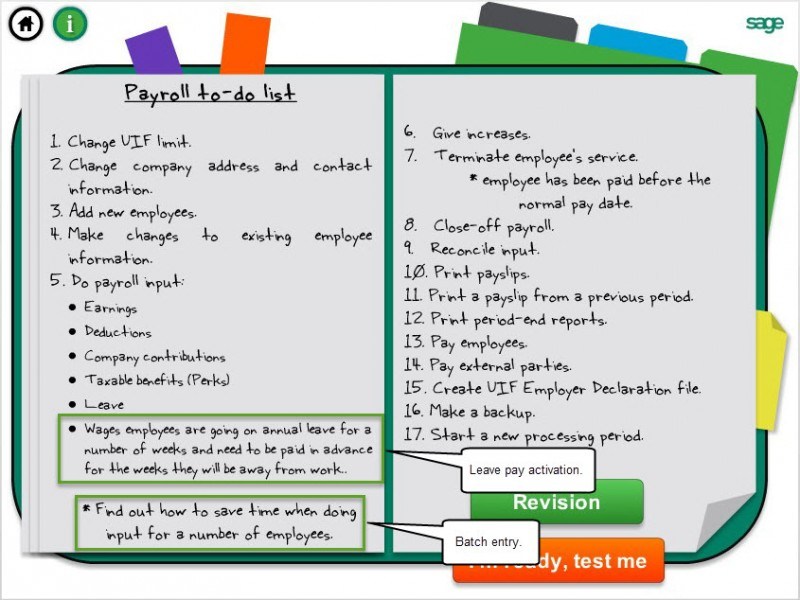 i
sage
Payroll to-do list
1. Change UIF limit.
2. Change company address and contact
information.
3. Add new employees.
4. Make changes to existing employee
information.
5. Do payroll input:
• Earnings
• Deductions
• Company contributions
• Taxable benefits (Perks)
• Leave
• Wages employees are going on annual leave for a
number of weeks and need to be paid in advance
for the weeks they will be away from work..
* Find out how to save time when doing
input for a number of employees.
6. Give increases.
7. Terminate employee's service.
* employee has been paid before the
normal pay date.
8. Close-off payroll.
9. Reconcile input.
10. Print payslips.
11. Print a payslip from a previous period.
12. Print period-end reports.
13. Pay employees.
14. Pay external parties.
15. Create UIF Employer Declaration file.
16. Make a backup.
17. Start a new processing period.
Leave pay activation.
Revision
Batch entry.
ready, test me